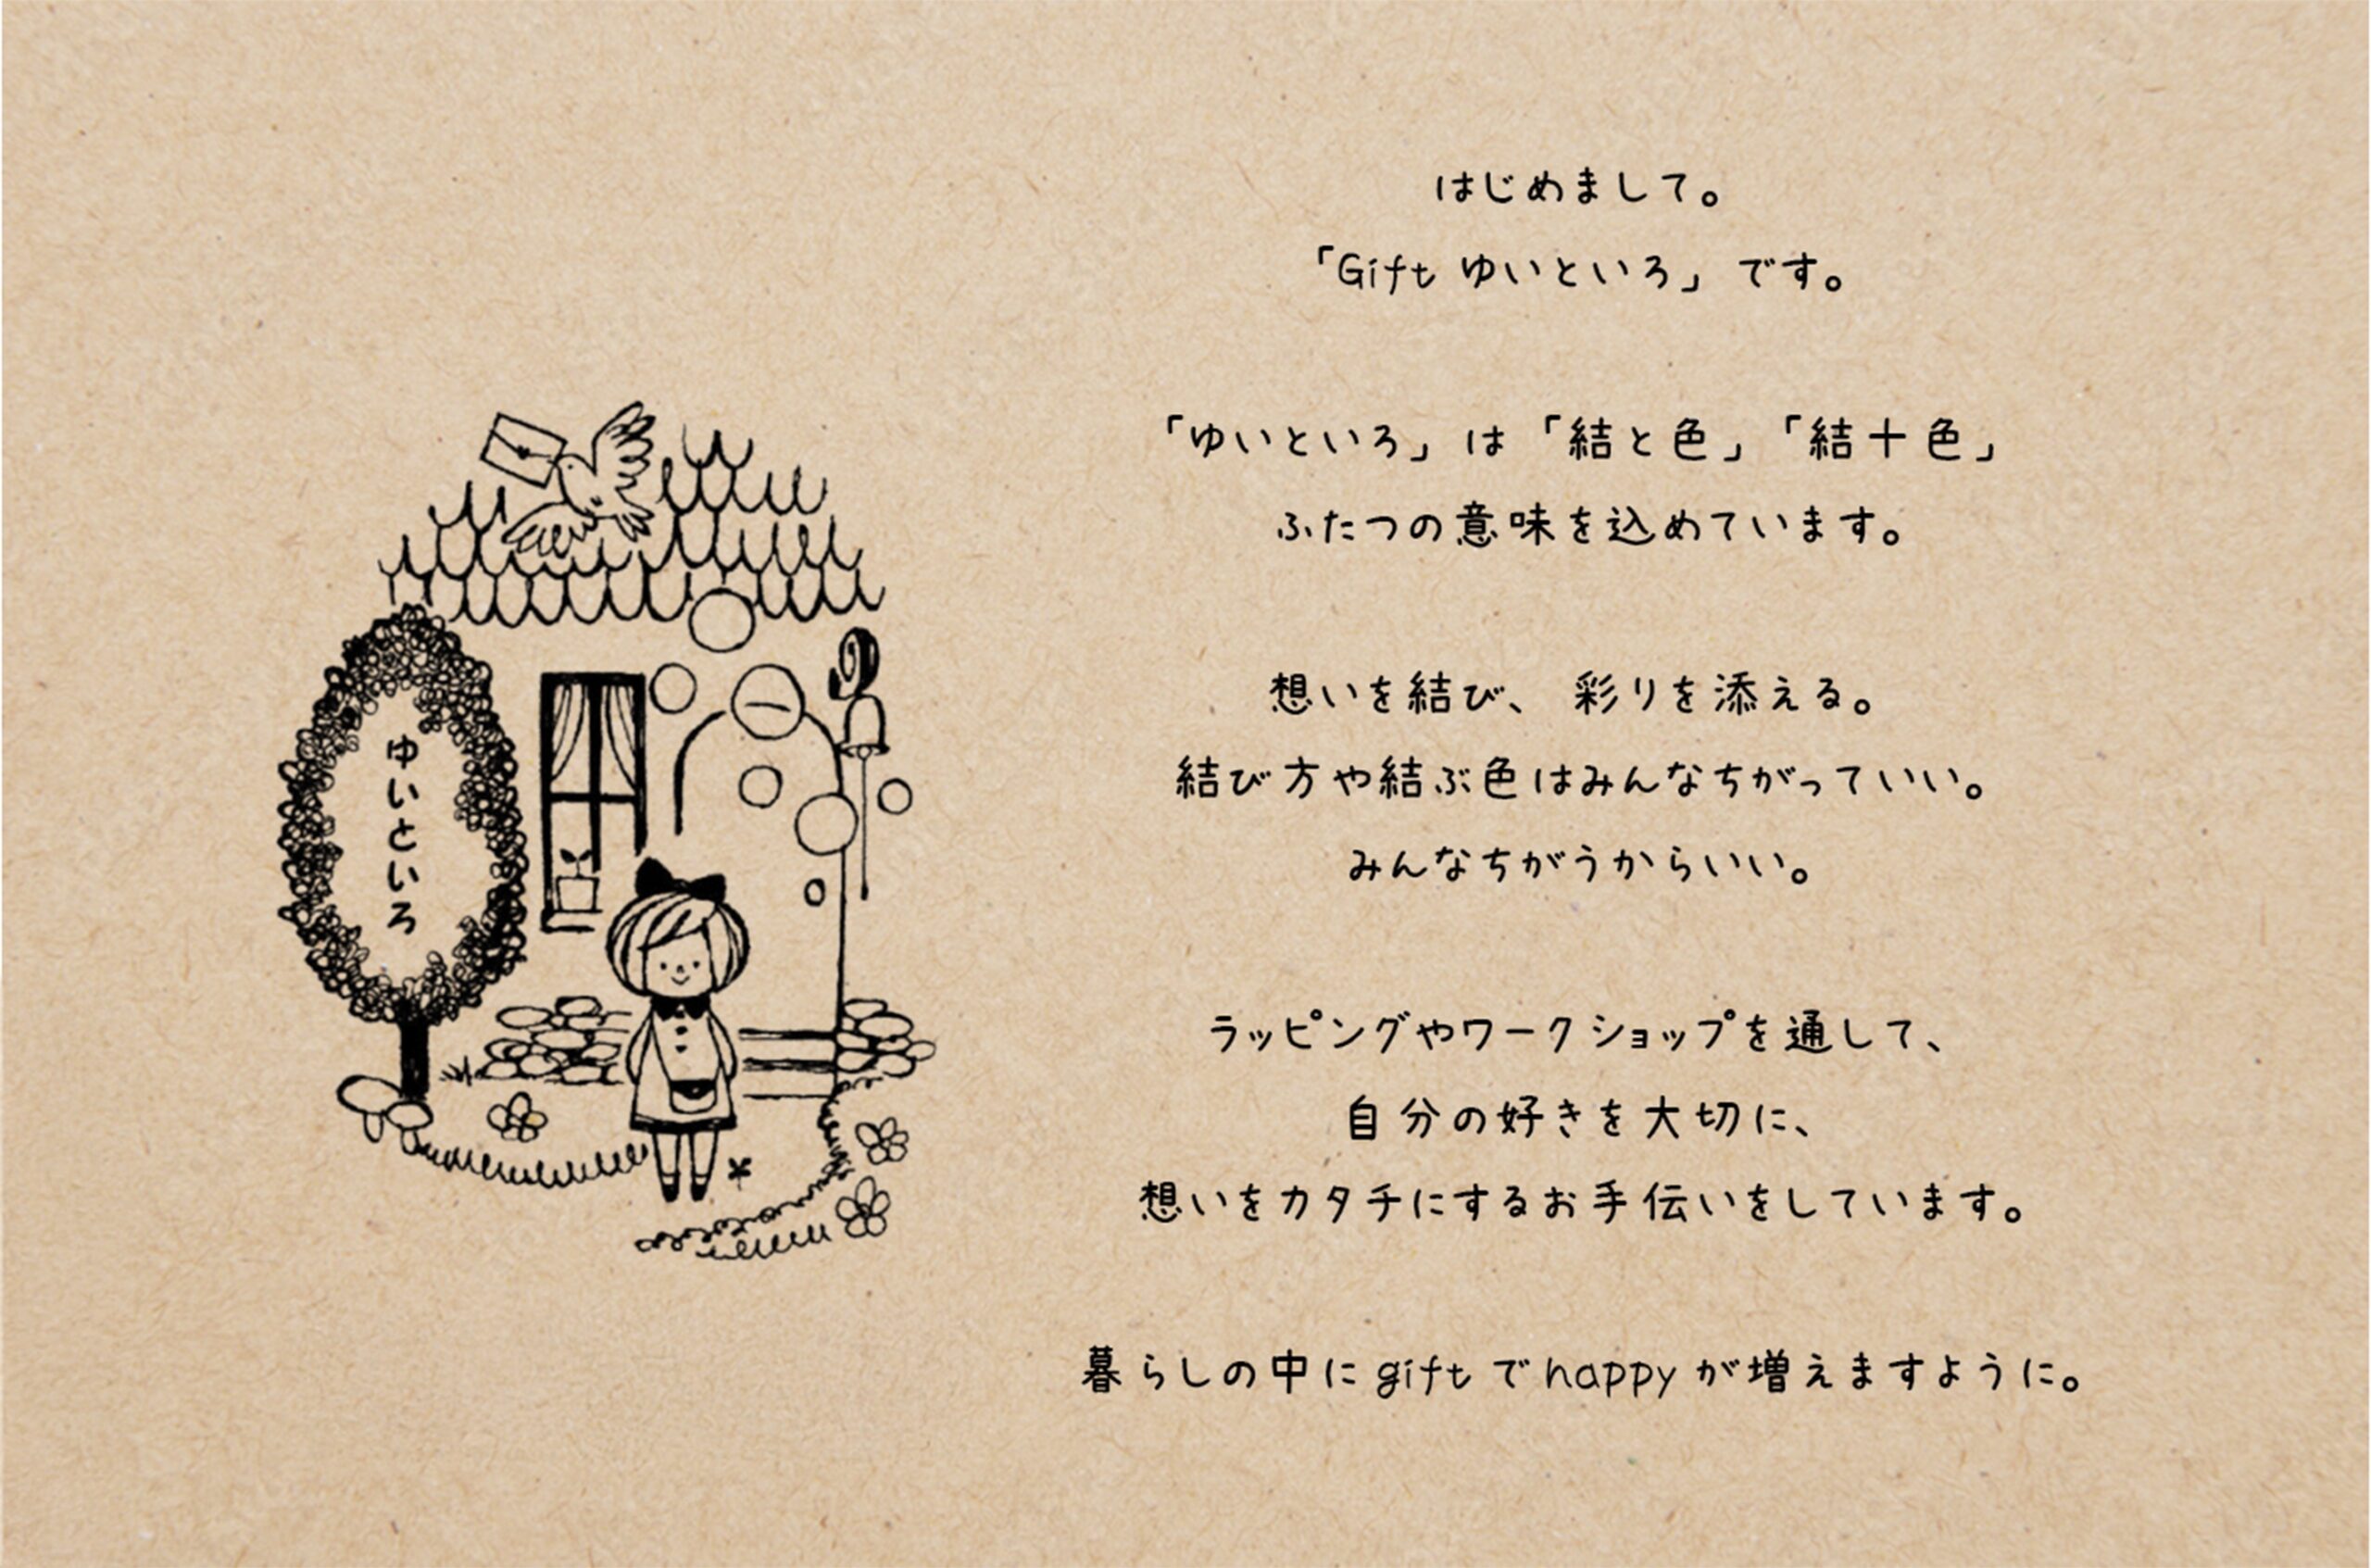 はじめまして。
「Gift ゆいといろ」です。
「ゆいといろ」は「結と色」「結十色」
ふたつの意味を込めています。
想いを結び、彩りを添える。
結び方や結ぶ色はみんなちがっていい。
みんなちがうからいい。
ラッピングやワークショップを通して、
自分の好きを大切に、
想いをカタチにするお手伝いをしています。
暮らしの中にgiftでhappyが増えますように。
ゆいといろ